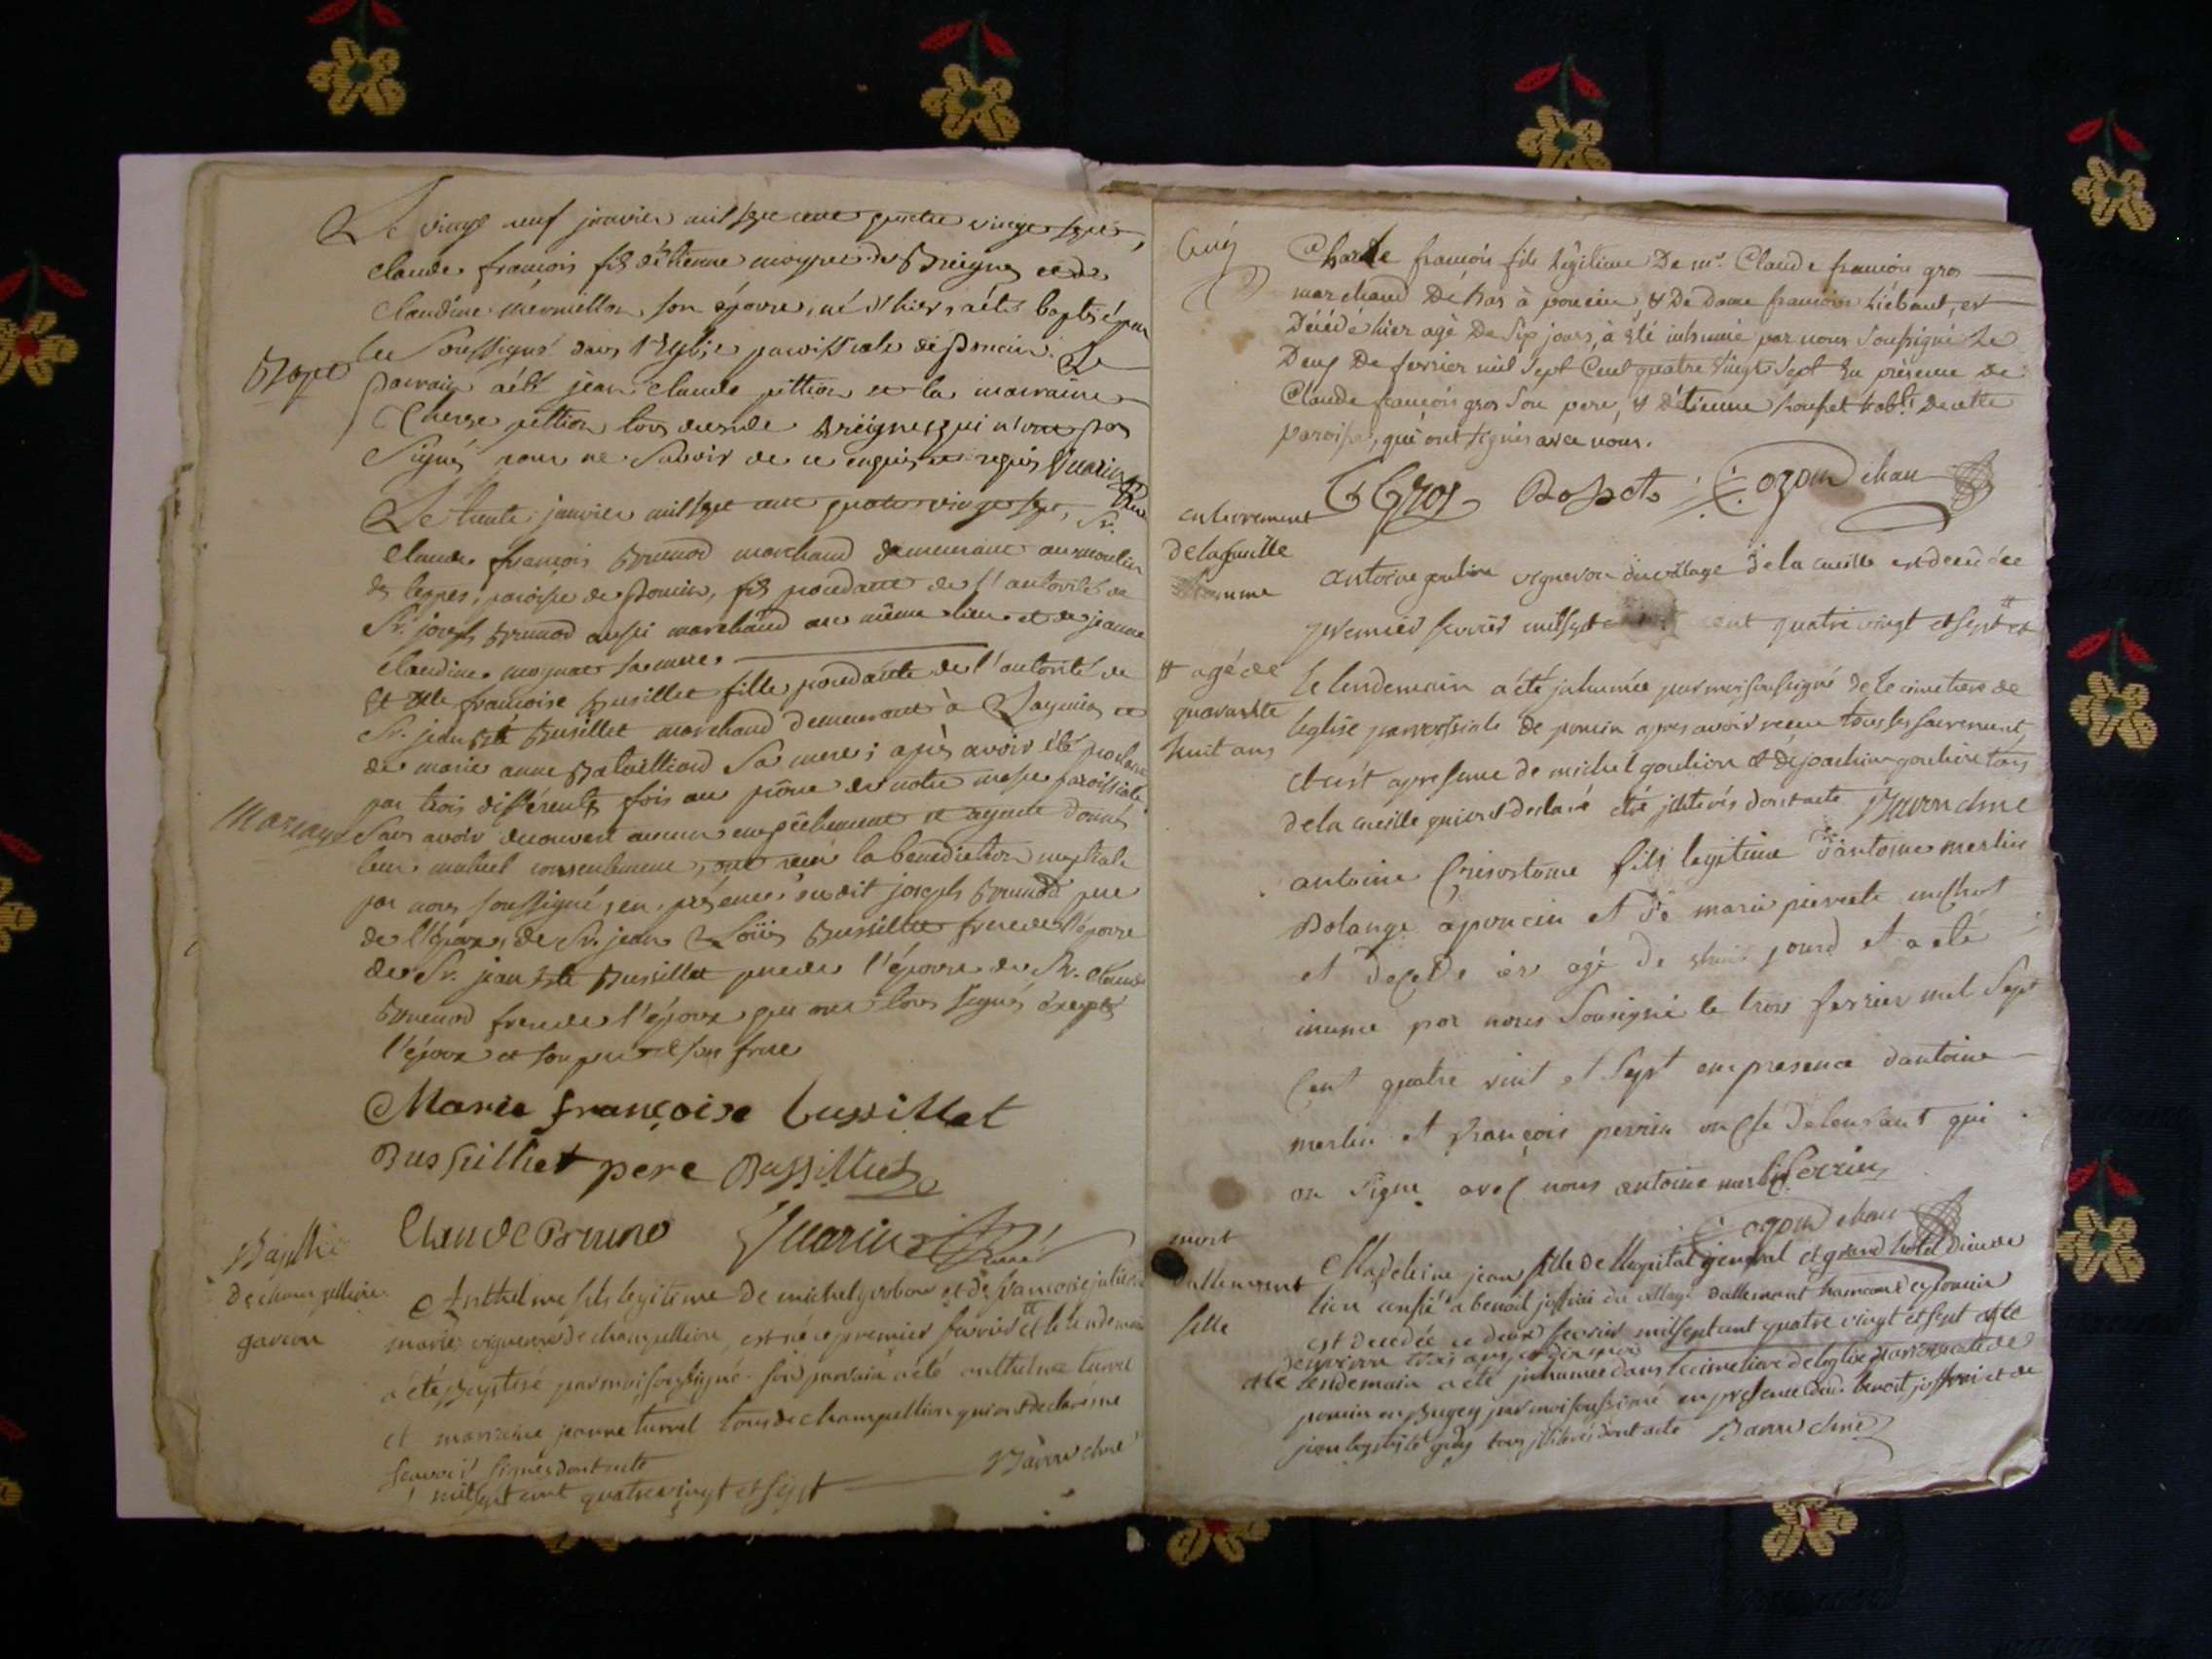 Le vingt neuf janvier mil sept cent quatre vingt sept,
claude françois fils d'étienne de Breignes et de
Claudine mermillon son épouse, né d'hier, a été baptisé par
le soussigné dans l'Eglise paroissiale de poncin. Le
Bapt
parrain a été jean claude pittion et la marraine
Therese pittion tous deux de Breignes qui n'ont pas
signés pour ne savoir de ce enquis et requis Guarin
Le trente janvier mil sept cent quatre vingt sept, Sr.
Claude françois Brunod marchand demeurant au moulin
des leppes, paroisse de poncin, fils procedant de l'autorité de
Sr. joseph Brunod aussi marchand au même lieu et de jeanne
claudine sa mere
Et Dlle françoise Bussillet fille procedante de l'autorité de
Sr. jean Bte Bussillet marchand demeurant à et
de marie anne Bataillard sa mere; après avoir été proclamé
par trois différentes fois au prône de notre messe paroissiale
Mariage
sans avoir decouvert aucun empêchement et ayant donné
leur mutuel consentement, ont reçu la benediction nuptiale
par nous soussigné, en présence dudit joseph Brunod pere
de l'époux, de Sr. jean Loüis Bussillet frere de l'épouse
de Sr. jean Bte Bussillet pere de l'épouse de Sr. claude
Brunod frere de l'époux qui ont tous signés excepté
l'époux et son pere et son frere
Marie françoise bussillet
Bussilliet pere Bussilliet
Claude Bruno Guarin
Bapthe
de champollion
garcon
Anthelme fils legitime de michel et de francoise
marie vigneron de champollion, est né ce premier fevrier et le lendemain
a été Baptisé par moi soussigné. son parrain a été anthelme turrel
et marraine jeanne turrel tous de champollion qui ont declaré ne
scavoir signés dont acte
mil sept cent quatre vingt et sept Baron chne
Charle françois fils légitime De mr. Claude françois gros
marchand De à poncin, & De dame françoise liébaut, est
Décédé hier agé De six jours, à été inhumé par nous soussigné Le
Deux De fevrier mil sept Cent quatre vingt sept En présence de
Claude françois gros son pere, & d'étienne habt. de cette
paroisse, qui ont signés avec nous.
CGros Rosset Cozon chan
enterrement
de la cueille
homme
antoine goulion vigneron du village de la cueille est decedée
premier fevrier mil sept cent quatre vingt et sept # et
# agé de
quarante
huit ans
le lendemain a été inhumée par moi soussigné de le cimetiere de
leglise parroissiale de poncin apres avoir receu tous les sacrement
et cest en presence de michel goulion et de joachim goulion tous
de la cueille qui ont declaré été iliterés dont acte Baron chne
antoine Crisostome fils legitime d'antoine merlin
Bolange a poncin et de marie pierrete
et decede ier agé de huit jours et a eté
inume par nous Sousigné le trois fevrier mil Sept
Cent quatre vint et Sept en presence dantoine
merlin et françois perrin oncle de lenfant qui
on Signe avec nous antoine merlin Perrin
Cozon chan
mort
dallement
fille
Madeleine jean fille de l'hopital general et grand hotel dieu de
lion confié a benoit joffrai du village dallement hameau de poncin
est decedée ce deux fevrier mil sept cent quatre vingt et sept agée
denviron trois ans et dix mois
et le lendemain a eté inhumée dans le cimetiere de leglise parroissiale de
poncin en Bugey par moi soussigné en presence dud. benoit joffrai et de
jean baptiste tous iliterés dont acte Baron chne